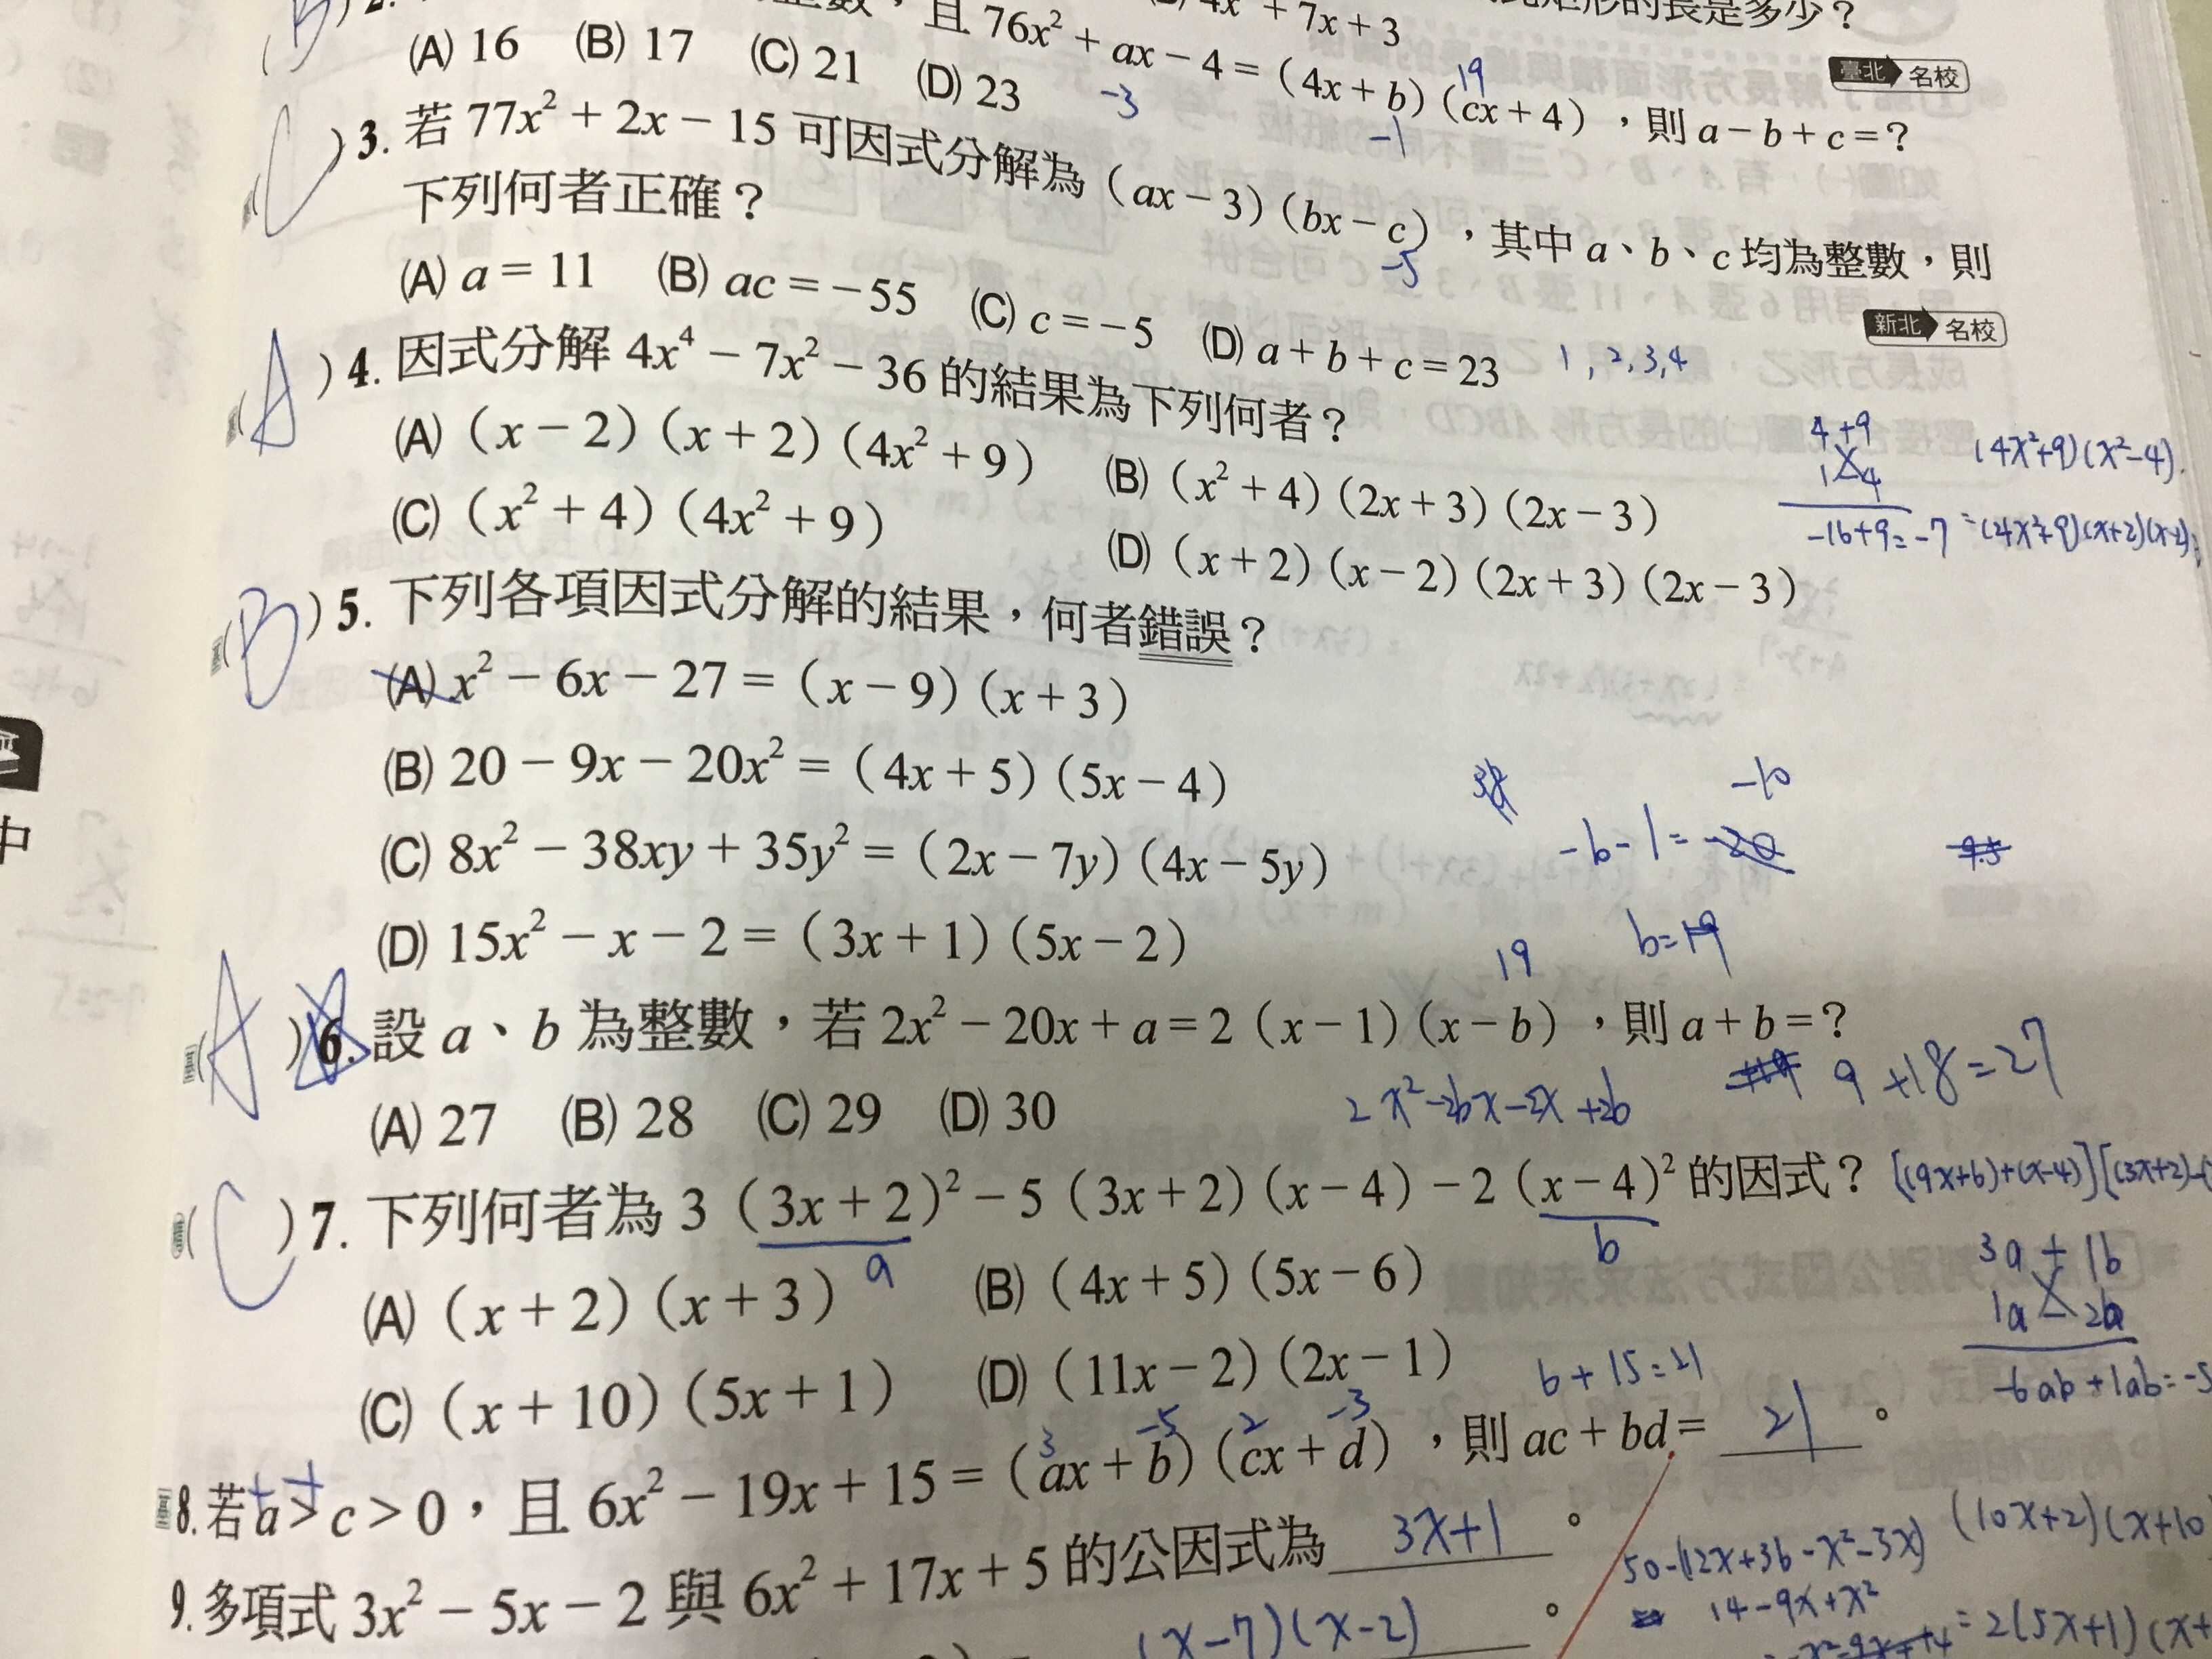 (B)2.
整數,且 76x² + ax − 4 = (4x + b)(cx + 4),則 a − b + c = ?
4x² + 7x + 3
的長是多少?
(A) 16 (B) 17 (C) 21 (D) 23
-3
19
-1
臺北 名校
(C)3. 若 77x² + 2x − 15 可因式分解為 (ax − 3)(bx − c),其中 a、b、c 均為整數,則
下列何者正確?
-5
(A) a = 11 (B) ac = −55 (C) c = −5 (D) a + b + c = 23
新北 名校
1,2,3,4
(A)4. 因式分解 4x⁴ − 7x² − 36 的結果為下列何者?
(A) (x − 2)(x + 2)(4x² + 9) (B) (x² + 4)(2x + 3)(2x − 3)
(C) (x² + 4)(4x² + 9) (D) (x + 2)(x − 2)(2x + 3)(2x − 3)
4 +9
1 -4
-16+9=-7
(4x²+9)(x²-4)
=(4x²+9)(x+2)(x-2)
(B)5. 下列各項因式分解的結果,何者錯誤?
(A) x² − 6x − 27 = (x − 9)(x + 3)
(B) 20 − 9x − 20x² = (4x + 5)(5x − 4)
(C) 8x² − 38xy + 35y² = (2x − 7y)(4x − 5y)
(D) 15x² − x − 2 = (3x + 1)(5x − 2)
-10
-b-1=-20
b=19
19
(A)6. 設 a、b 為整數,若 2x² − 20x + a = 2(x − 1)(x − b),則 a + b = ?
(A) 27 (B) 28 (C) 29 (D) 30
2x²-2bx-2x+2b
9+18=27
(C)7. 下列何者為 3(3x + 2)² − 5(3x + 2)(x − 4) − 2(x − 4)² 的因式?
a
b
[(9x+6)+(x-4)][(3x+2)-
(A) (x + 2)(x + 3) (B) (4x + 5)(5x − 6)
(C) (x + 10)(5x + 1) (D) (11x − 2)(2x − 1)
3a + 1b
1a - 2b
-6ab+1ab=-5
6+15=21
3 -5 2 -3
8. 若 a > c > 0,且 6x² − 19x + 15 = (ax + b)(cx + d),則 ac + bd = 21 。
9. 多項式 3x² − 5x − 2 與 6x² + 17x + 5 的公因式為 3x+1 。
(x-7)(x-2) 。
50-(12x+36-x²-3x)
14-9x+x²
(10x+2)(x+10
=2(5x+1)(x+
中